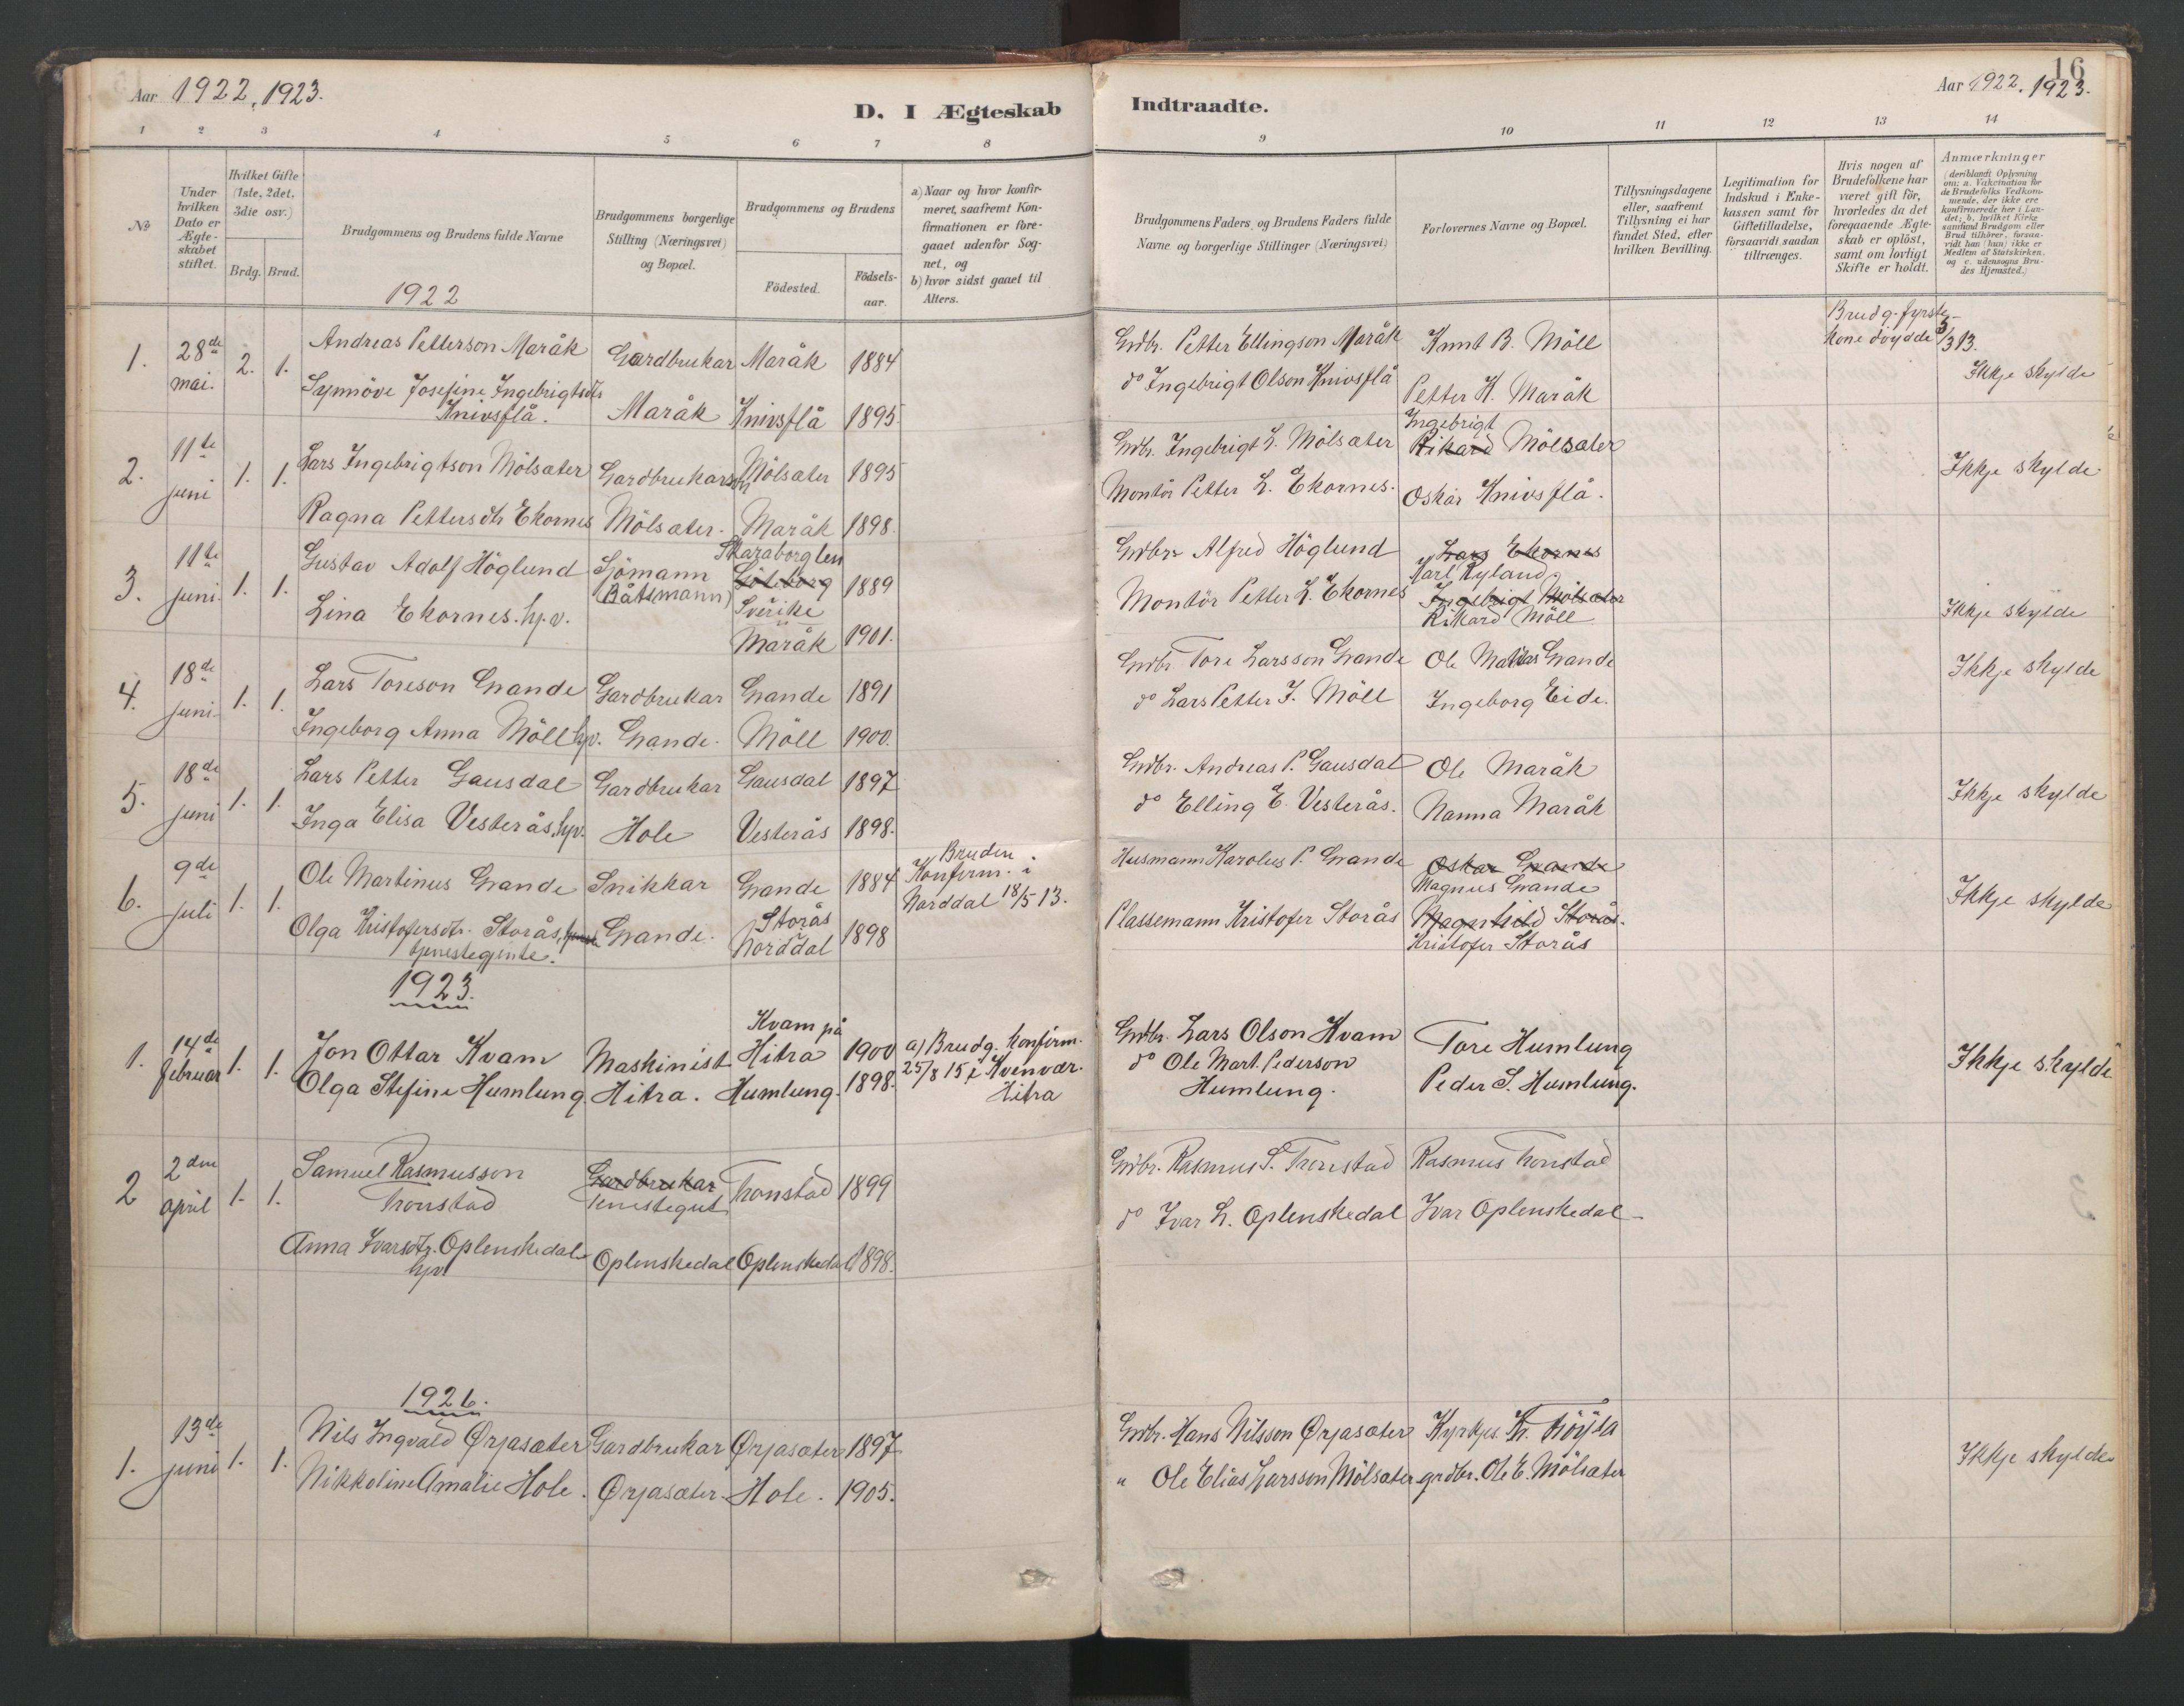 Aar 1922, 1923.
D. I Ægteskab
Indtraadte.
Aar 1922, 1923.
16
1 2 3 4 5 6 7 8
9 10 11 12 13 14
No
Under hvilken Dato er Ægteskabet stiftet.
Hvilket Gifte (1ste, 2det, 3die osv.)
Brdg. Brud.
Brudgommens og Brudens fulde Navne
Brudgommens borgerlige Stilling (Næringsvei) og Bopæl.
Brudgommens og Brudens
Födested.
Födsels-aar.
a) Naar og hvor konfirmeret, saafremt Konfirmationen er foregaaet udenfor Sognet, og
b) hvor sidst gaaet til Alters.
Brudgommens Faders og Brudens Faders fulde Navne og borgerlige Stillinger (Næringsvei)
Forlovernes Navne og Bopæl.
Tillysningsdagene eller, saafremt Tillysning ei har fundet Sted, efter hvilken Bevilling.
Legitimation for Indskud i Enkekassen samt for Giftetilladelse, forsaavidt saadan tiltrænges.
Hvis nogen af Brudefolkene har været gift för, hvorledes da det foregaaende Ægteskab er oplöst, samt om lovligt Skifte er holdt.
Anmærkninger (deriblandt Oplysning om: a. Vakcination for de Brudefolks Vedkommende, der ikke ere konfirmerede her i Landet; b. hvilket Kirkesamfund Brudgom eller Brud tilhörer, forsaavidt han (hun) ikke er Medlem af Statskirken, og c. udensogns Brudes Hjemsted.)
1922
1. 28de mai. 2. 1.
Andreas Petterson Maråk Gardbrukar Maråk 1884
Synnöve Josefine Ingebrigtsdtr Knivsflå. Maråk Knivsflå 1895
Grdbr. Petter Ellingson Maråk Knut B. Möll
do Ingebrigt Olson Knivsflå Petter K. Maråk
Brudg. fyrste kone döydde 5/3 13.
Ikkje skylde
2. 11te juni 1. 1.
Lars Ingebrigtson Mölsæter Gardbrukarson Mölsæter 1895
Ragna Pettersdtr Ekornes Mölsæter. Maråk 1898.
Grdbr. Ingebrigt L. Mölsæter Ingebrigt Rikard Mölsæter
Montör Petter L. Ekornes. Oskar Knivsflå.
Ikkje skylde
3. 11te juni. 1. 1.
Gustav Adolf Höglund Sjömann (Båtsmann) Skaraborg len Göteborg Sverike 1889
Lina Ekornes. hj.v. Maråk 1901.
Grdbr. Alfred Höglund Lars Ekornes Karl Ryland.
Montör Petter L. Ekornes Ingebrigt Mölsæter Rikard Möll
Ikkje skylde
4. 18de juni. 1. 1.
Lars Toreson Grande Gardbrukar Grande 1891
Ingeborg Anna Möll hjv. Grande. Möll 1900.
Grdbr. Tore Larsson Grande Ole Matias Grande
do Lars Petter J. Möll Ingeborg Eide.
Ikkje skylde
5. 18de juni 1. 1.
Lars Petter Gausdal Gardbrukar Gausdal 1897
Inga Elisa Vesterås, hjv. Hole Vesterås 1898.
Grdbr. Andreas P. Gausdal Ole Maråk
do Elling E. Vesterås. Nanna Maråk
Ikkje skylde
6. 9de juli 1. 1.
Ole Martinus Grande Snikkar Grande 1884
Bruden Konfirm. i Norddal 18/5 13.
Olga Kristofersdtr. Storås, tjenestegjente. Grande. Storås Norddal 1898
Husmann Karolus P. Grande Oskar Grande Magnus Grande
Plassemann Kristofer Storås Magnhild Storås. Kristofer Storås
Ikkje skylde
1923.
1. 14de februar 1. 1.
Jon Ottar Kvam Maskinist Kvam på Hitra 1900
Olga Stefine Humlung Hitra. Humlung. 1898.
a) Brudg. konfirm. 25/8 15 i Kvenvær. Hitra
Grdbr. Lars Olson Kvam Tore Humlung
do Ole Mart. Pederson Humlung. Peder S. Humlung.
Ikkje skylde
2 2den april 1. 1.
Samuel Rasmusson Tronstad Gardbrukar Tenestegut Tronstad 1899
Anna Ivarsdtr. Oplenskedal hjv. Oplenskedal Oplenskedal 1898.
Grdbr. Rasmus S. Tronstad Rasmus Tronstad
do Ivar L. Oplenskedal Ivar Oplenskedal
1926.
1. 13de juni 1. 1.
Nils Ingvald Ørjasæter Gardbrukar Ørjasæter 1897
Nikkoline Amalie Hole. Ørjasæter. Hole. 1905.
Grdbr. Hans Nilsson Ørjasæter Kyrkjes. Kr.
" Ole Elias Larsson Mölsæter grdbr. Ole E. Mölsæter
Ikkje skylde